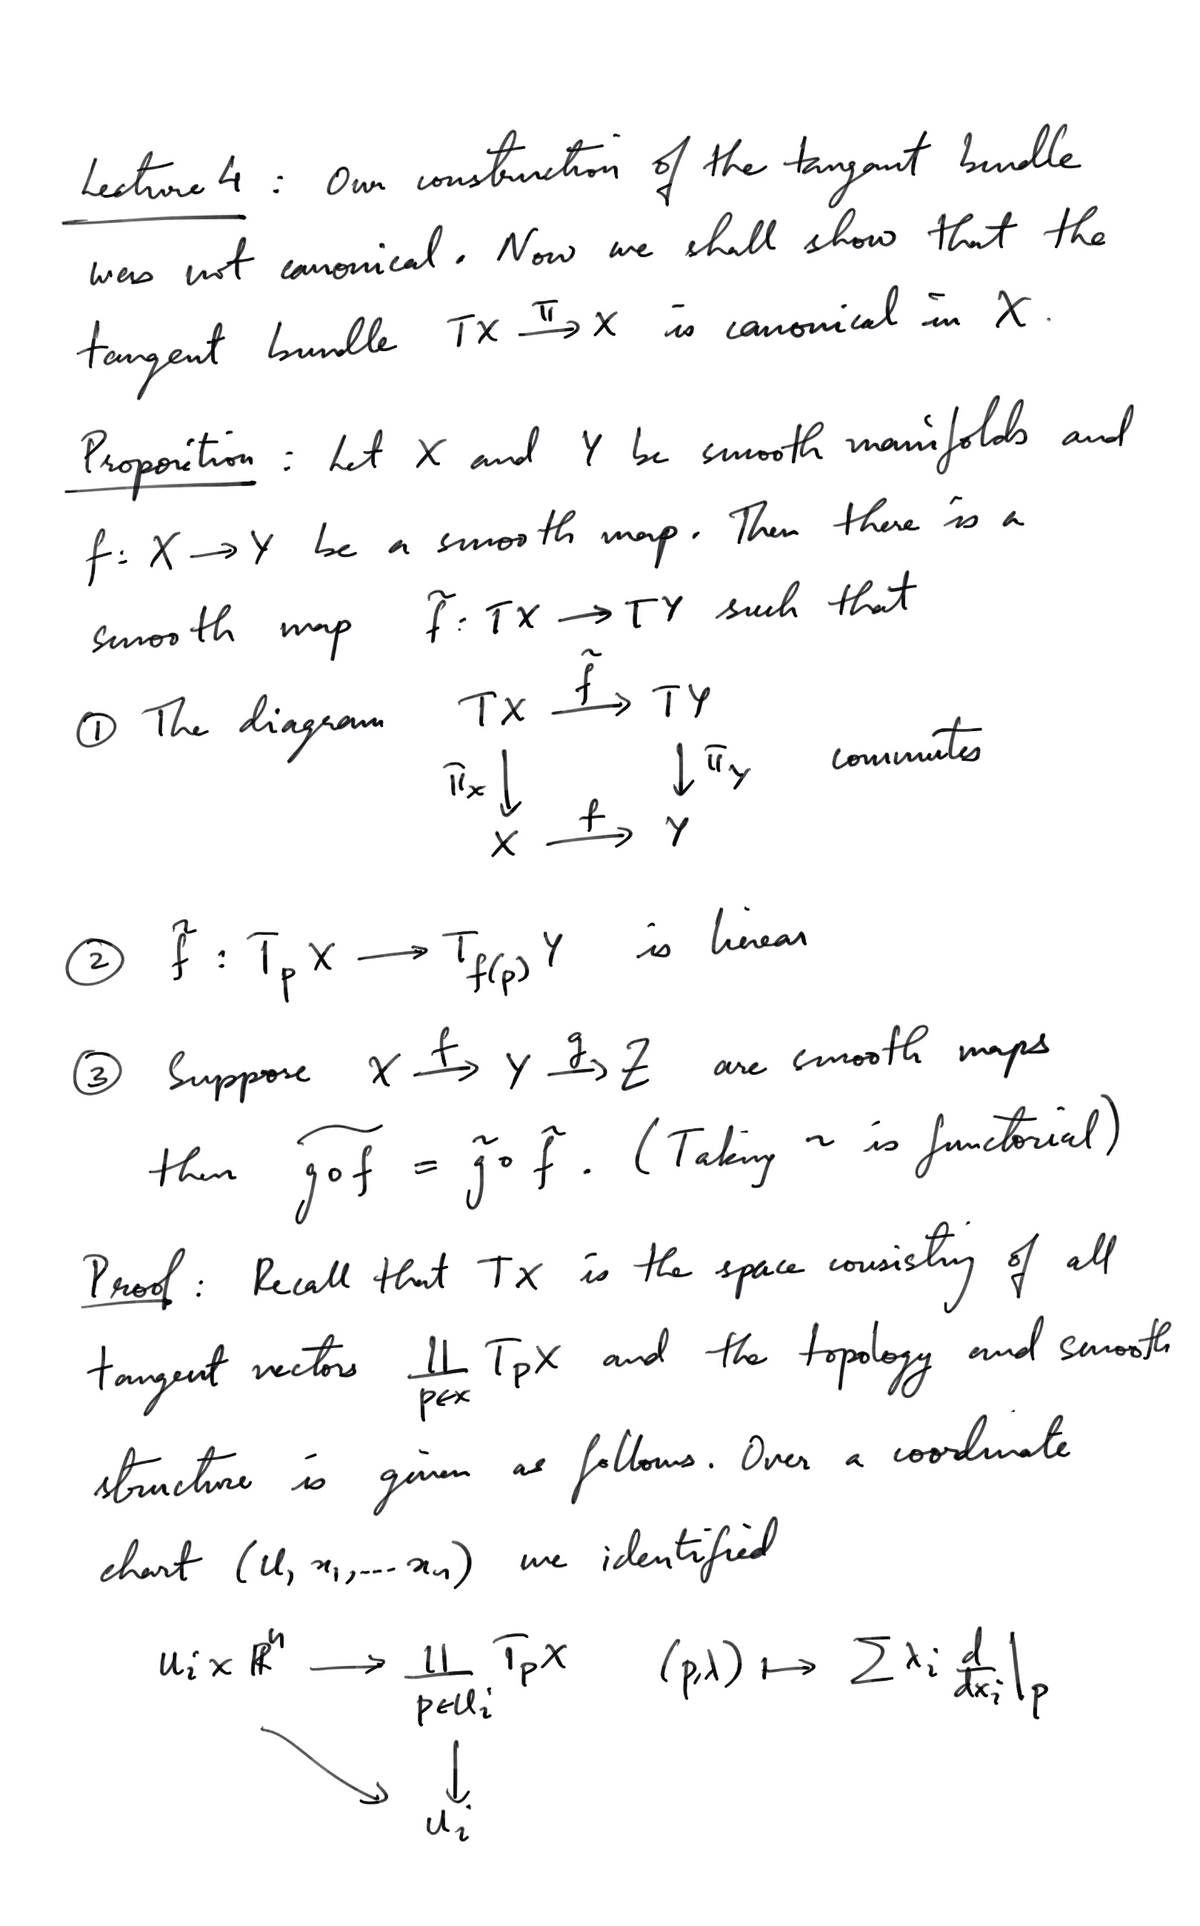 Lecture 4 : Our construction of the tangant bundle
was not canonical. Now we shall show that the
tangent bundle TX →^π X is canonical in X.
Proposition : Let X and Y be smooth manifolds and
f: X → Y be a smooth map. Then there is a
smooth map f̃: TX → TY such that
① The diagram TX →^f̃ TY
π_X ↓ ↓ π_Y commutes
X →^f Y
② f̃ : T_p X → T_{f(p)} Y is linear
③ Suppose X →^f Y →^g Z are smooth maps
then \widetilde{g∘f} = g̃∘f̃. (Taking ~ is functorial)
Proof : Recall that TX is the space consisting of all
tangent vectors ∐_{p∈X} T_pX and the topology and smooth
structure is given as follows. Over a coordinate
chart (U, x₁,...xₙ) we identified
U_i × ℝⁿ → ∐_{p∈U_i} T_pX (p,λ) ↦ Σ λ_i d/dx_i |_p
↘ ↓
U_i